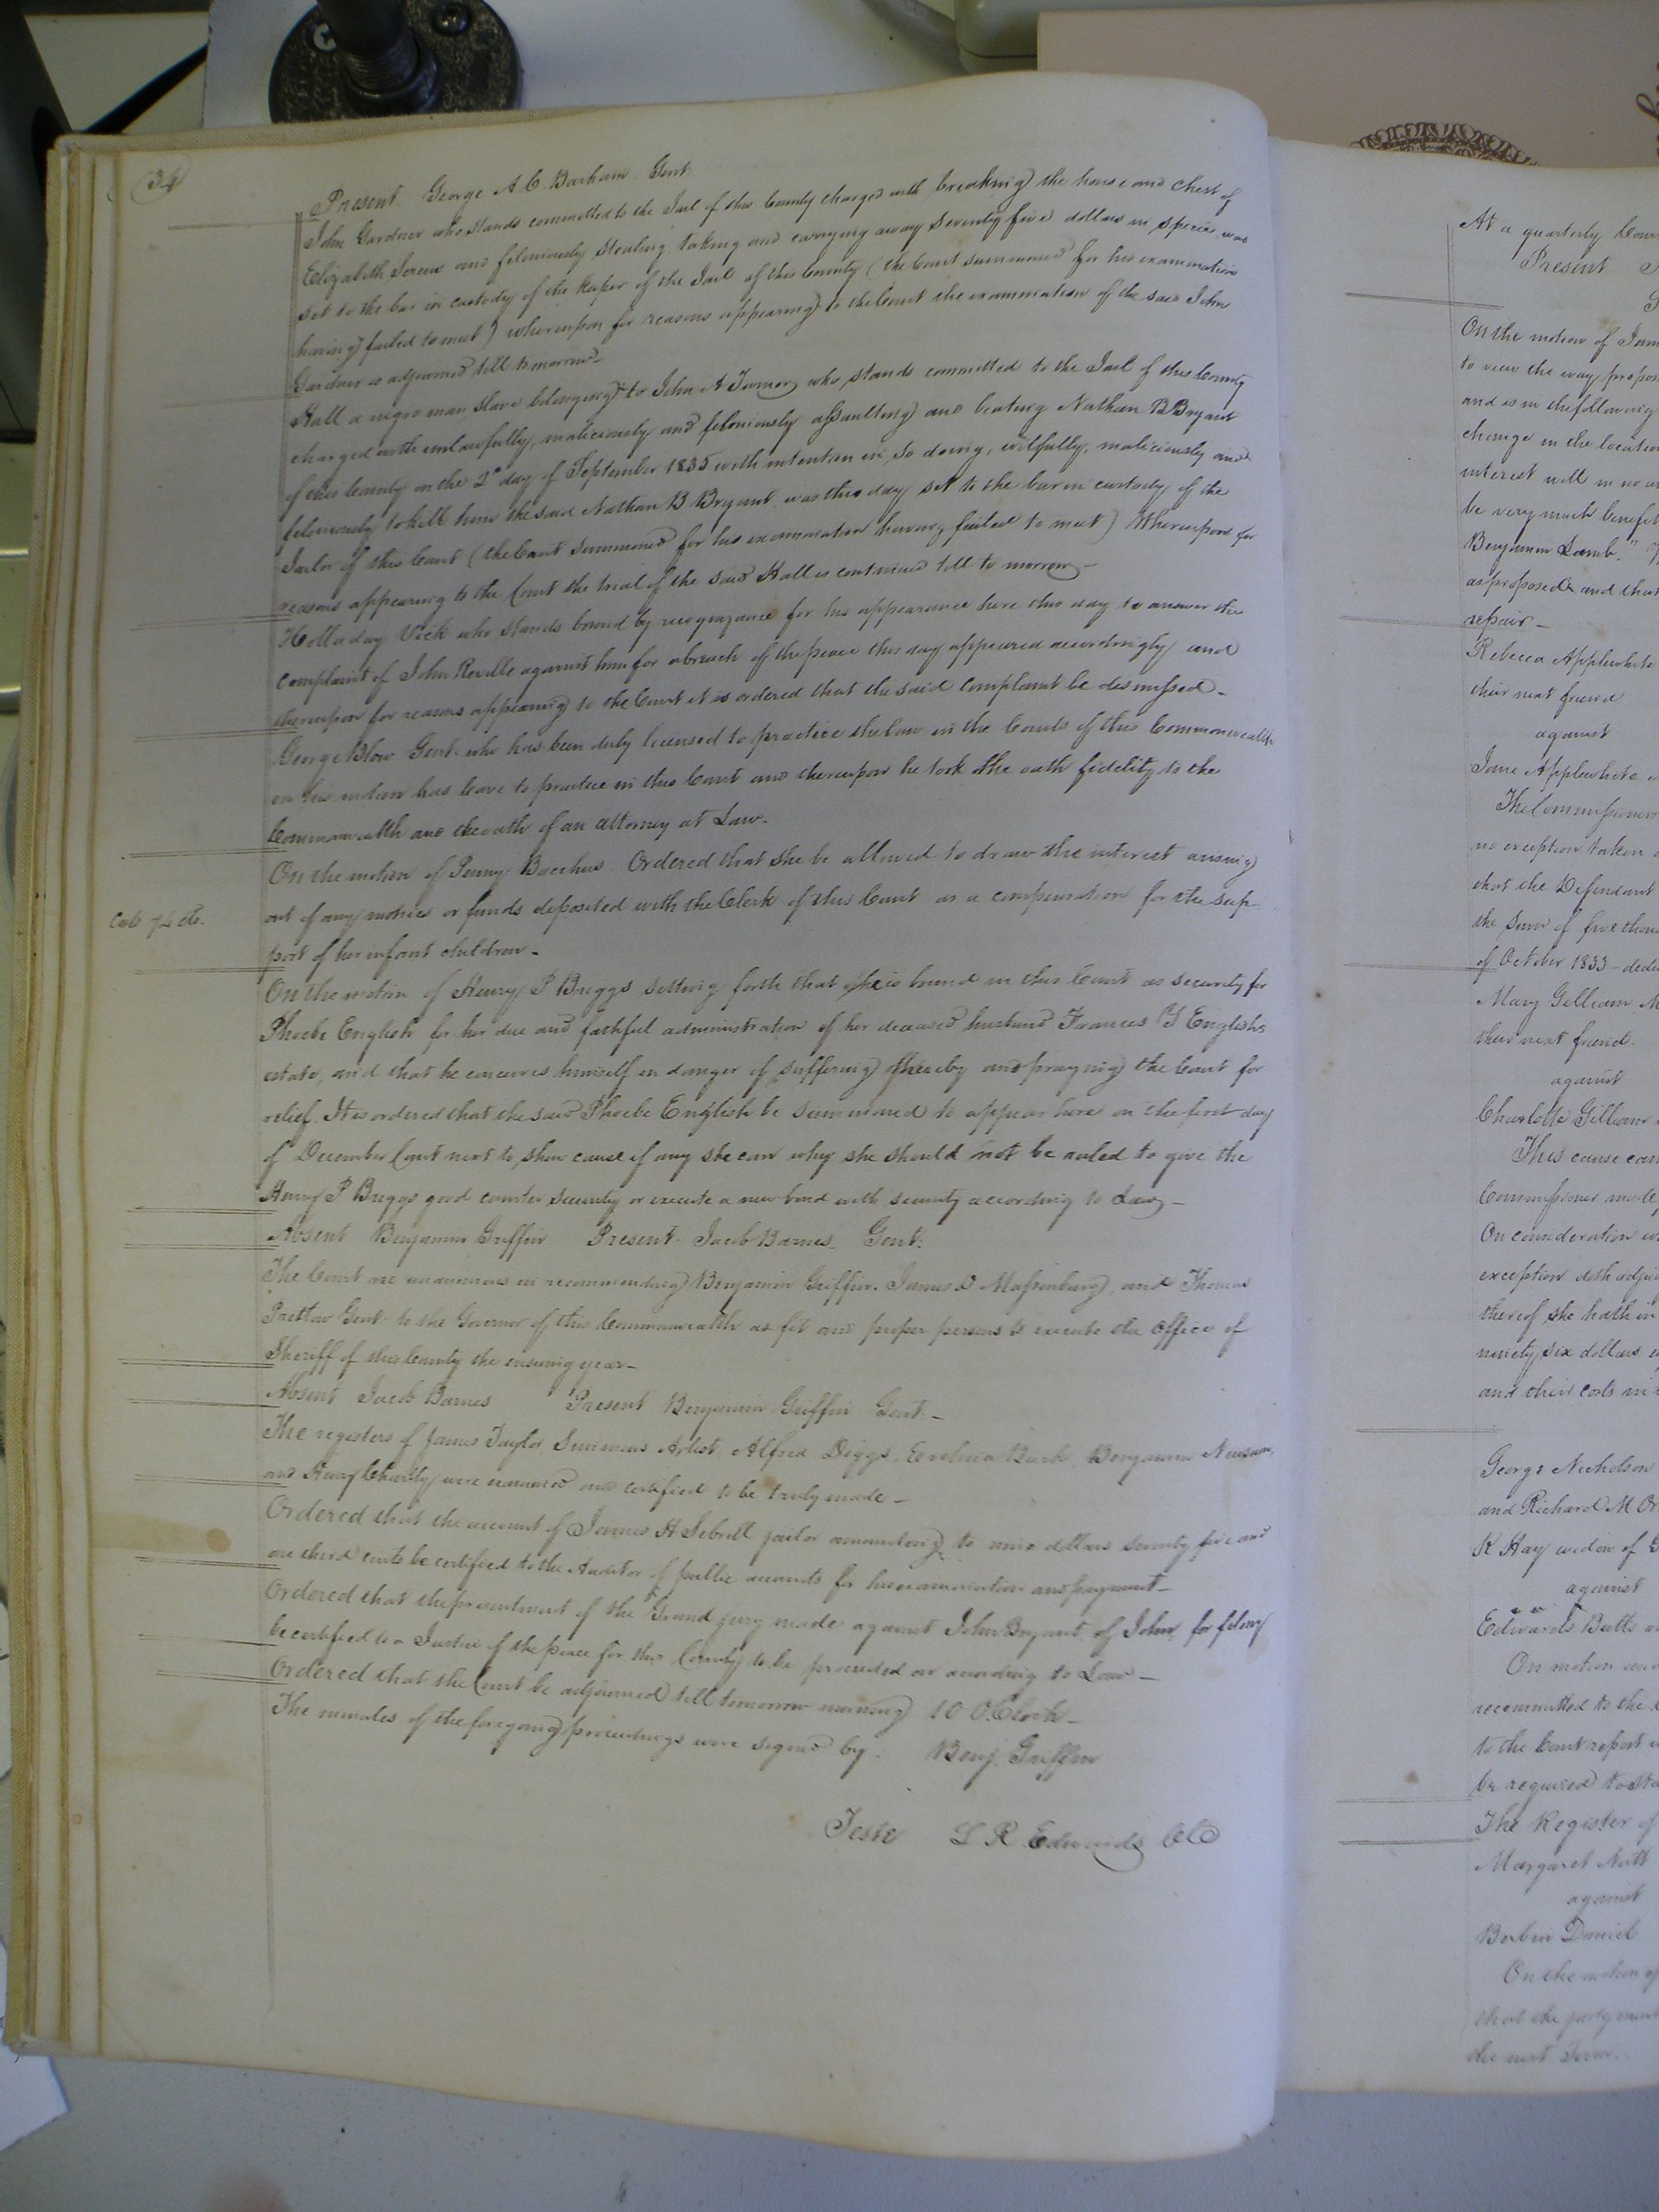 34
Present George A. C. Barham Gent
John Gardner who stands committed to the Jail of this County charged with breaking the house and chest of
Elizabeth and feloniously stealing taking and carrying away Seventy five dollars in specie was
set to the bar in custody of the keeper of the Jail of this County (the Court summoned for his examination
having failed to meet) whereupon for reasons appearing to the Court the examination of the said John
Gardner is adjourned till tomorrow
Hall a negro man slave belonging to John A Turner who stands committed to the Jail of this County
charged with unlawfully, maliciously and feloniously assaulting and beating Nathan B Bryant
of this County on the 2d day of September 1835 with intention in so doing, wilfully, maliciously and
feloniously to kill him the said Nathan B Bryant was this day set to the bar in custody of the
Jailor of this Court (the Court summoned for his examination having failed to meet) Whereupon for
reasons appearing to the Court the trial of the said Hall is continued till to morrow
Holladay Vick who stands bound by recognizance for his appearance here this day to answer the
complaint of John Reville against him for a breach of the peace this day appeared accordingly and
thereupon for reasons appearing to the Court it is ordered that the said complaint be dismissed -
George Blow Gent. who has been duly licensed to practice the law in the Courts of this Commonwealth
on his motion has leave to practice in this Court and thereupon he took the oath fidelity to the
Commonwealth and the oath of an attorney at Law.
On the motion of Penny Bacchus Ordered that she be allowed to draw the interest arising
out of any monies or funds deposited with the Clerk of this Court as a compensation for the sup-
port of her infant children -
On the motion of Henry P Briggs setting forth that he is bound in this Court as security for
Phoebe English for her due and faithful administration of her deceased husband Frances Y English's
estate, and that he conceives himself in danger of suffering thereby and praying the Court for
relief. It is ordered that the said Phoebe English be summoned to appear here on the first day
of December Court next to shew cause if any she can why she should not be ruled to give the
Henry P Briggs good counter security or execute a new bond with security according to Law -
Absent Benjamin Griffin Present Jacob Barnes Gent.
The Court are unanimous in recommending Benjamin Griffin, James D Massenburg, and Thomas
Pretlow Gent. to the Governor of this Commonwealth as fit and proper persons to execute the Office of
Sheriff of this County the ensuing year -
Absent Jacob Barnes Present Benjamin Griffin Gent. -
The registers of James Taylor, Simmons Artist, Alfred Diggs, Evelina Buck, Benjamin Newsum,
and Henry Charity were examined and certified to be truly made -
Ordered that the account of James H Sebrell jailor amounting to nine dollars seventy five and
one third cents be certified to the Auditor of public accounts for his examination and payment -
Ordered that the presentment of the Grand jury made against John Bryant of John for felony
be certified to a Justice of the peace for this County to be proceeded on according to Law -
Ordered that the Court be adjourned till tomorrow morning 10 O.Clock -
The minutes of the foregoing proceedings were signed by. Benj. Griffin
Teste L R Edwards
At a quarterly
Present
On the motion of
to view the way
and is in the following
change in the location
interest will in no
be very much
Benjamin Lamb."
as proposed and that
repair -
Rebecca Applewhite
their next friend
against
Jane Applewhite
The Commissioner
no exception taken
that the Defendant
the sum of five
of October 1833
Mary Gilliam
their next friend.
against
Charlotte Gilliam
This cause
Commissioner
On consideration
exception doth
thereof she hath in
ninety six dollars
and their costs in
George Nicholson
and Richard M
K Hay widow of
against
Edwards Butts
On motion
recommitted to the
to the Court report
be required to
The Register of
Margaret Nutt
against
Berbin Daniel
On the motion of
that the
the next Term.